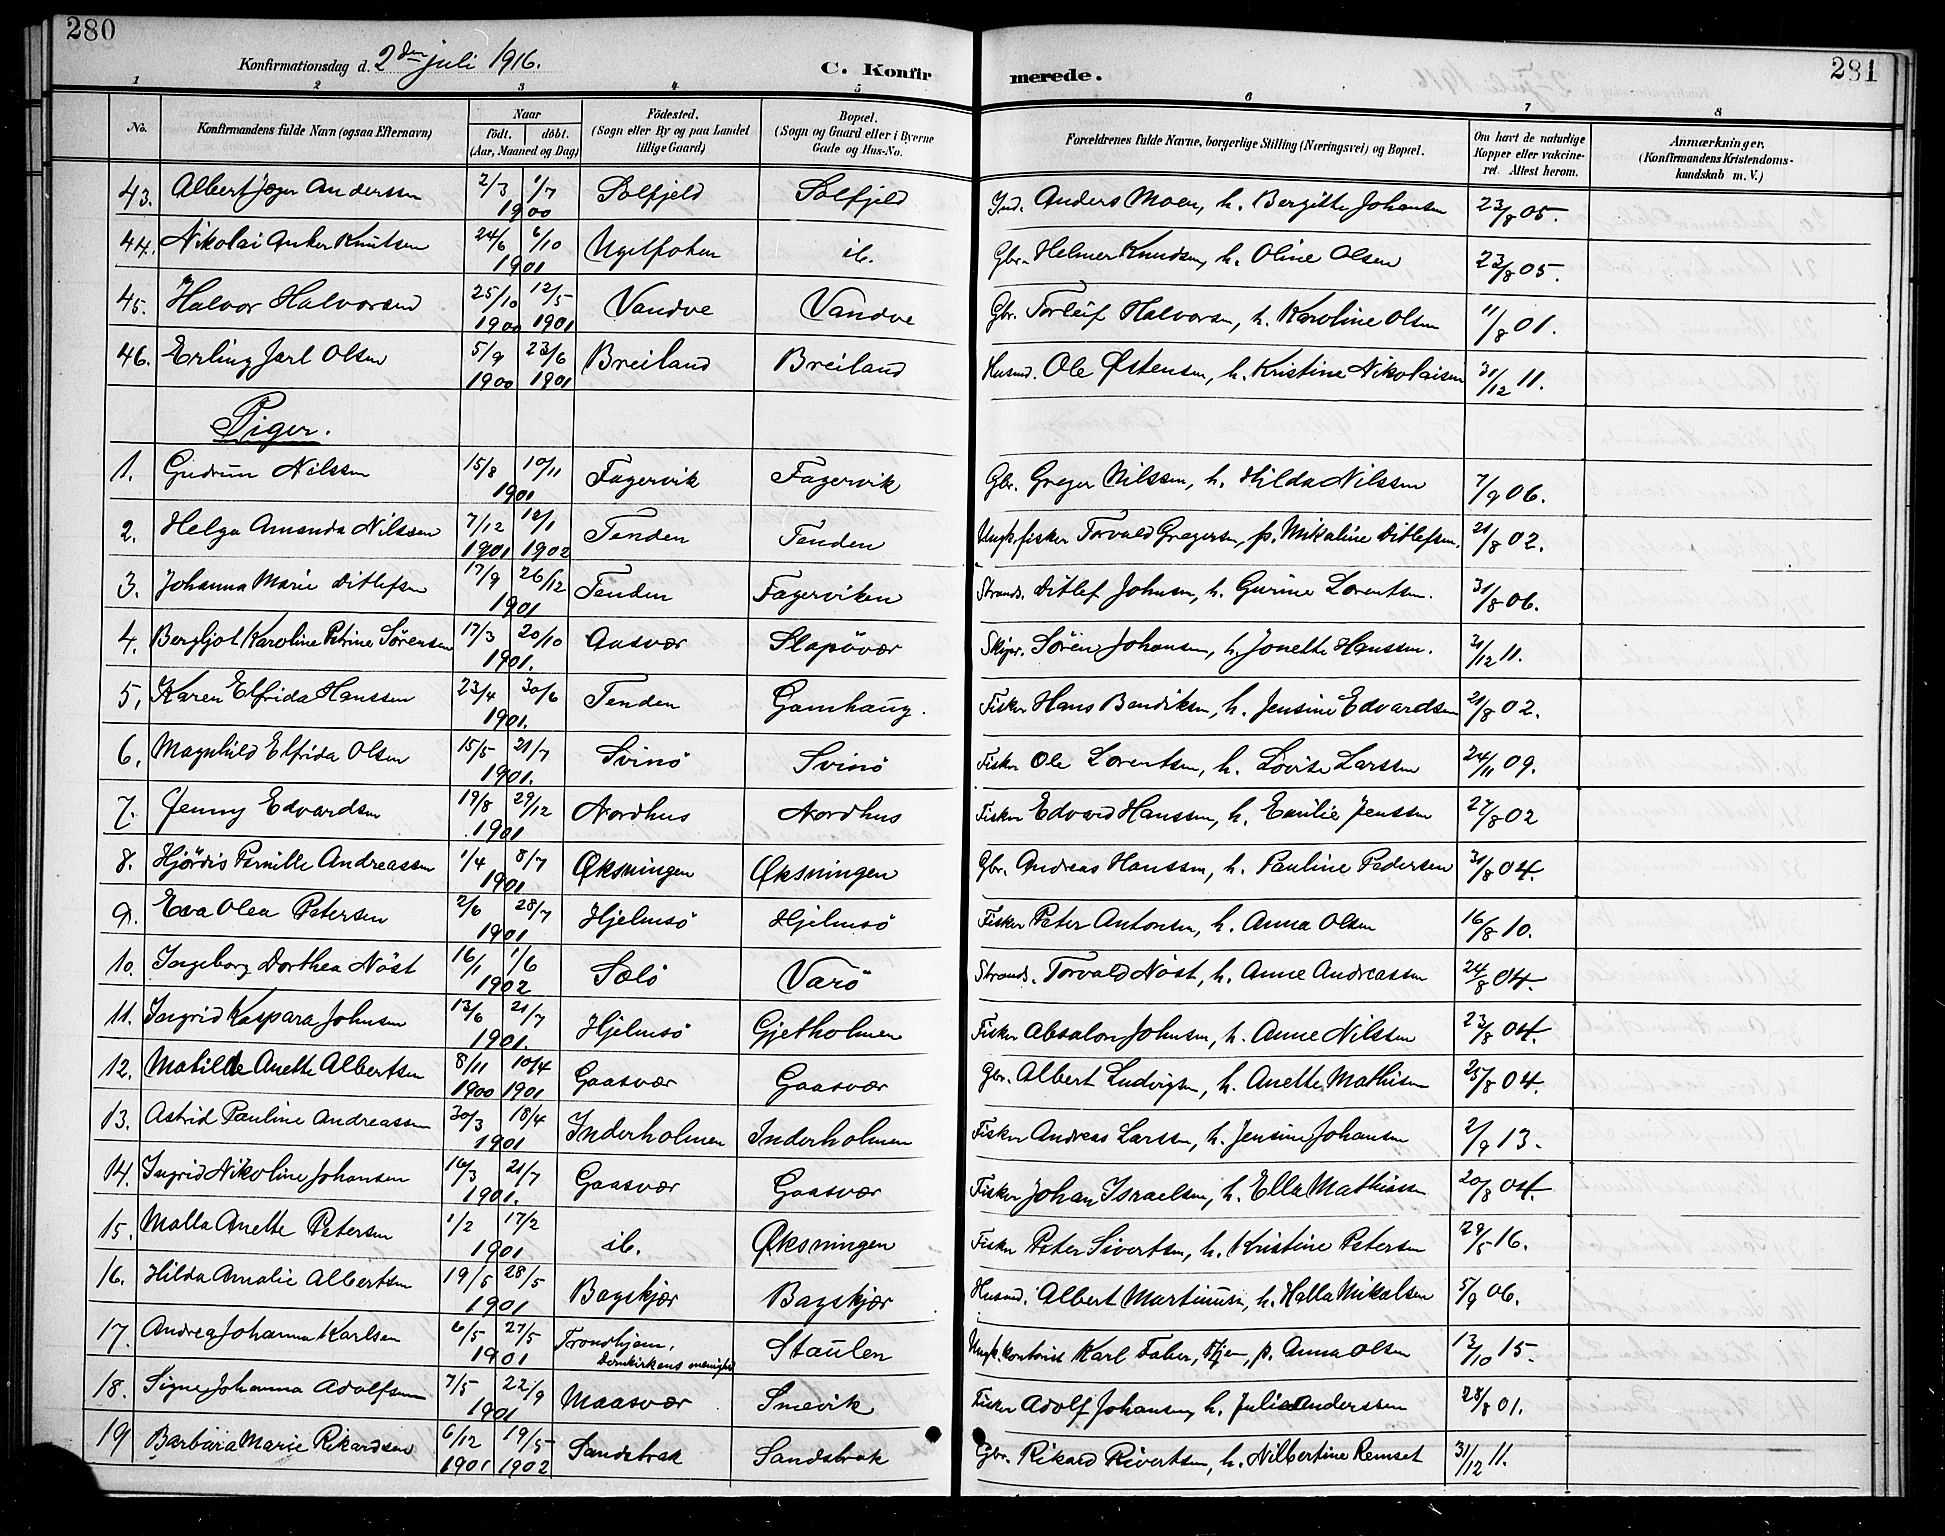 280
Konfirmationsdag d. 2den juli 1916.
C. Konfir merede.
281
1 2 3 4 5 6 7 8
No. Konfirmandens fulde Navn (ogsaa Efternavn) Naar födt. döbt. (Aar, Maaned og Dag) Födested. (Sogn eller By og paa Landet tillige Gaard) Bopæl. (Sogn og Gaard eller i Byerne Gade og Hus-No. Forældrenes fulde Navne, borgerlige Stilling (Næringsvei) og Bopæl. Om havt de naturlige Kopper eller vakcineret. Attest herom. Anmærkninger. (Konfirmandens Kristendomskundskab m. V.)
43. Albert Jæger Anderssen 2/3 1/7 1900 Solfjeld Solfjeld Ind. Anders Moen, h. Bergitte Johansen 23/8 05.
44. Nikolai Anker Knutsen 24/6 6/10 1901 ib. Gbr. Helmer Knudsen, h. Oline Olsen 23/8 05.
45. Halvor Halvorsen 25/10 1900 12/5 1901 Vandve Vandve Gbr. Torleif Halvorsen, h. Karoline Olsen 11/8 01.
46. Erling Jarl Olsen 5/9 1900 23/6 1901 Breiland Breiland Husmd. Ole Østensen, h. Kristine Nikolaisen 31/12 11.
Piger.
1. Gudrun Nilssen 15/8 10/11 1901 Fagervik Fagervik Gbr. Greger Nilssen, h. Hilda Nilssen 7/9 06.
2. Helga Amanda Nilssen 7/12 1901 12/1 1902 Tenden Tenden Ungk. fisker Torvald Gregersen, p. Mikaline Ditlefsen. 21/8 02.
3. Johanna Marie Ditlefsen 17/9 26/12 1901 Tenden Fagerviken Strands. Ditlef Johnsen, h. Gurine Lorentsen. 31/8 06.
4. Bergljot Karoline Petrine Sørensen 17/3 20/10 1901. Aasvær Slapøvær Skipr. Sören Johansen, h. Jonette Hanssen. 31/12 11.
5. Karen Elfrida Hanssen 23/4 30/6 1901. Tenden Gamhaug. Fisker Hans Bendiksen, h. Jensine Edvardsen 21/8 02.
6. Magnhild Elfrida Olsen 15/5 21/7 1901. Svinö Svinö Fisker Ole Lorentsen, h. Lovise Larssen 24/11 09.
7. Jenny Edvardsen 19/8 29/12 1901 Nordhus Nordhus Fisker Edvard Hanssen, h. Emilie Jenssen 27/8 02
8. Hjördis Pernille Andreassen 1/4 8/7 1901 Øksningen Øksningen Gbr. Andreas Hanssen, h. Pauline Pedersen 31/8 04.
9. Eva Olea Petersen 2/6 28/7 1901 Hjelmsö Hjelmsö Fisker Peter Antonsen, h. Anna Olsen 16/8 10.
10. Ingeborg Dorthea Nöst 16/1 1/6 1902 Sælö Varö Strands. Torvald Nöst, h. Anne Andreassen 24/8 04.
11. Ingrid Kaspara Johnsen 13/6 21/7 1901. Hjelmsö Gjetholmen Fisker Absalon Johnsen, h. Anne Nilssen 23/8 04.
12. Matilde Anette Albertsen 8/11 1900 10/4 1901 Gaasvær Gaasvær Gbr. Albert Ludvigsen, h. Anette Mathisen 25/8 04.
13. Astrid Pauline Andreassen 30/3 18/4 1901 Inderholmen Inderholmen Fisker Andreas Larssen, h. Jensine Johansen 2/9 13.
14. Ingrid Nikoline Johansen 16/3 21/7 1901. Gaasvær Gaasvær Fisker Johan Israelsen, h. Ella Mathiassen 20/8 04.
15. Malla Anette Petersen 1/2 17/2 1901 ib. Øksningen Fisker Peter Sivertsen, h. Kristine Petersen 29/5 16.
16. Hilda Amalie Albertsen 19/5 28/5 1901 Bagskjær Bagskjær Husmd. Albert Martinusen, h. Halla Mikalsen 5/9 06.
17. Andrea Johanna Karlsen 6/5 27/5 1901 Trondhjem, domkirkens menighed Staulen Ungk. kontorist Karl Faber, Thjem, p. Anna Olsen 13/10 15.
18. Signe Johanna Adolfsen 7/5 22/9 1901 Maasvær Smevik Fisker Adolf Johansen, h. Julie Anderssen 28/8 01.
19 Barbara Marie Rikardsen 6/12 1901 19/5 1902 Sandstrak Sandstrak Gbr. Rikard Sivertsen, h. Nilbertine Remset 31/12 11.